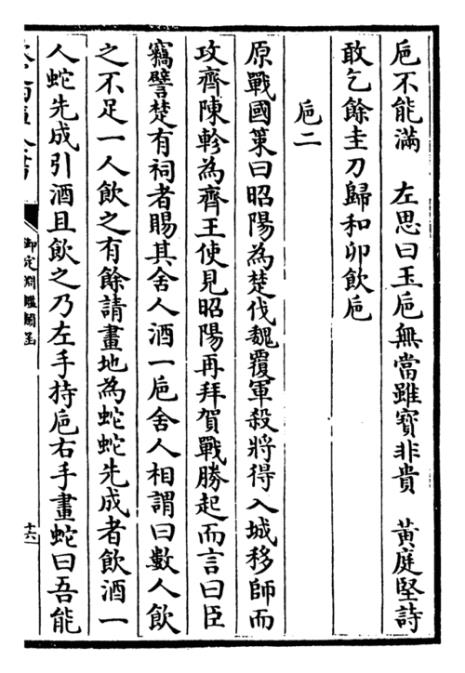 巵不能滿　左思曰玉巵無當雖寳非貴　黄庭堅詩
敢乞餘圭刀歸和卯飲巵
巵二
原戰國策曰昭陽為楚伐魏覆軍殺將得入城移師而
攻齊陳軫為齊王使見昭陽再拜賀戰勝起而言曰臣
竊譬楚有祠者賜其舍人酒一巵舍人相謂曰數人飲
之不足一人飲之有餘請畫地為蛇蛇先成者飲酒一
人蛇先成引酒且飲之乃左手持巵右手畫蛇曰吾能
御定淵鑑類函
十六